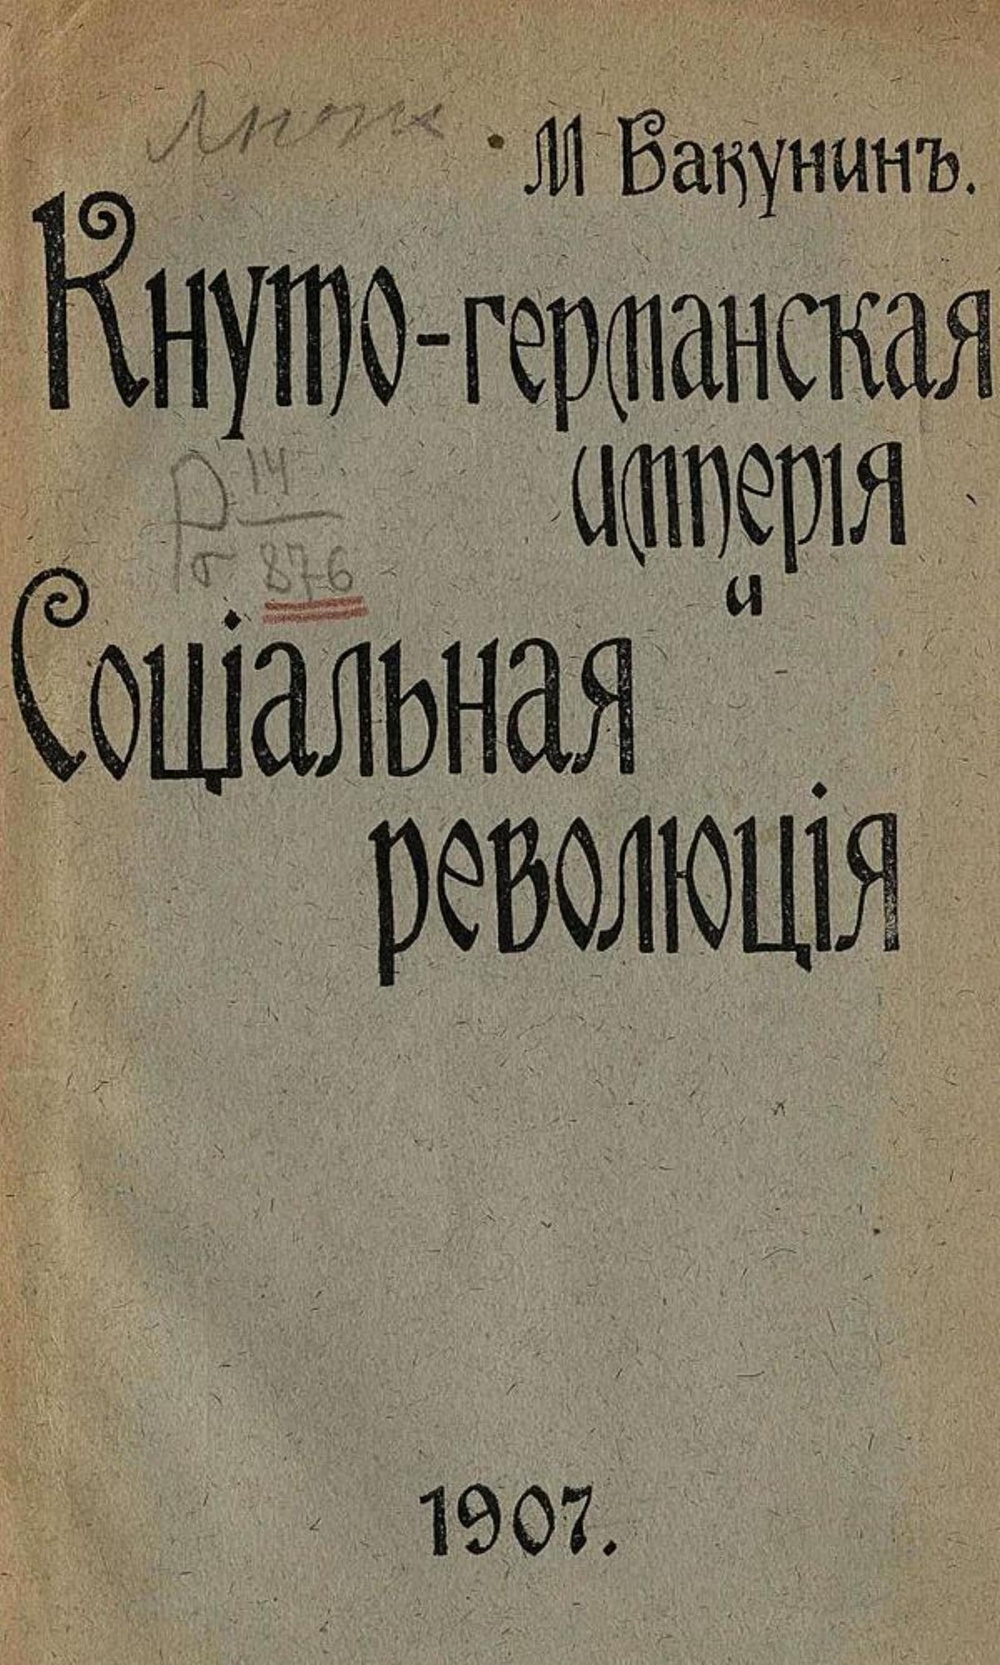 М Бакунинъ.
Кнуто-германская
имперія
и
Соціальная
революція
14
876
1907.